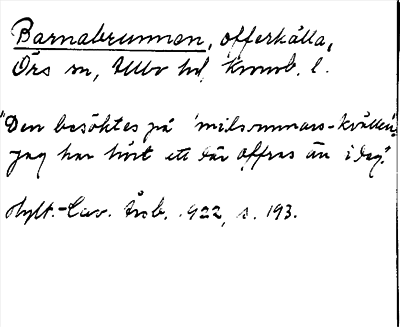 Barnabrunnen, offerkälla,
Örs sn, Valbo hd, Kronob. l.
"Den besöktes på 'midsommars-kvällen';
jag har hört att där offras än i dag."
Hylt.-Cav. Årsb. 1922, s. 193.